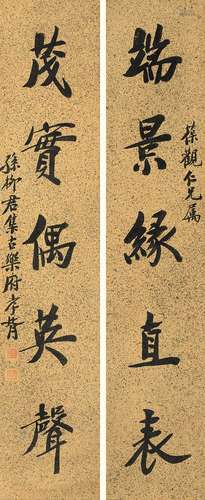 葆觀仁兄屬
端景緣直表
茂實偶英聲
孫柳君集古樂府孝胥